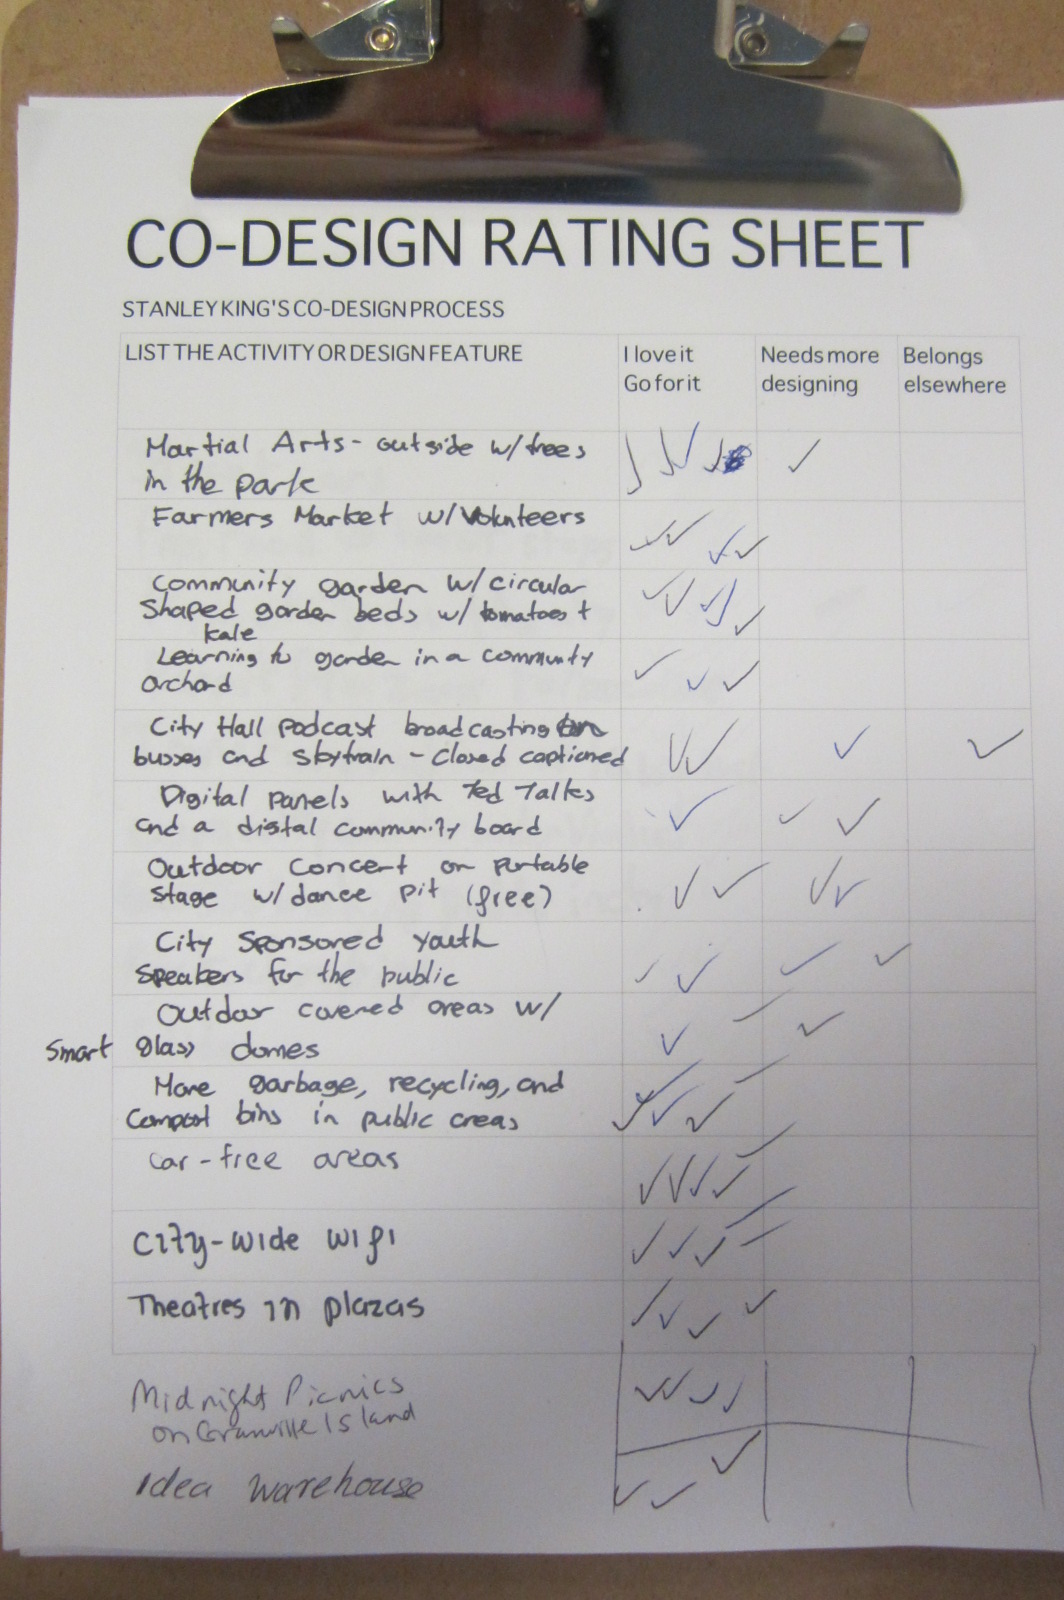 CO-DESIGN RATING SHEET
STANLEY KING'S CO-DESIGN PROCESS
LIST THE ACTIVITY OR DESIGN FEATURE
I love it
Go for it
Needs more
designing
Belongs
elsewhere
Martial Arts - outside w/ trees
in the park
Farmers Market w/ Volunteers
Community garden w/ circular
shaped garden beds w/ tomatoes +
kale
Learning to garden in a community
orchard
City Hall podcast broadcasting on
busses and skytrain - closed captioned
Digital panels with Ted Talks
and a digital community board
Outdoor concert on portable
stage w/ dance pit (free)
City sponsored youth
speakers for the public
Outdoor covered areas w/
smart glass domes
More garbage, recycling, and
compost bins in public areas
car-free areas
city-wide wifi
Theatres in plazas
Midnight Picnics
on Granville Island
Idea warehouse